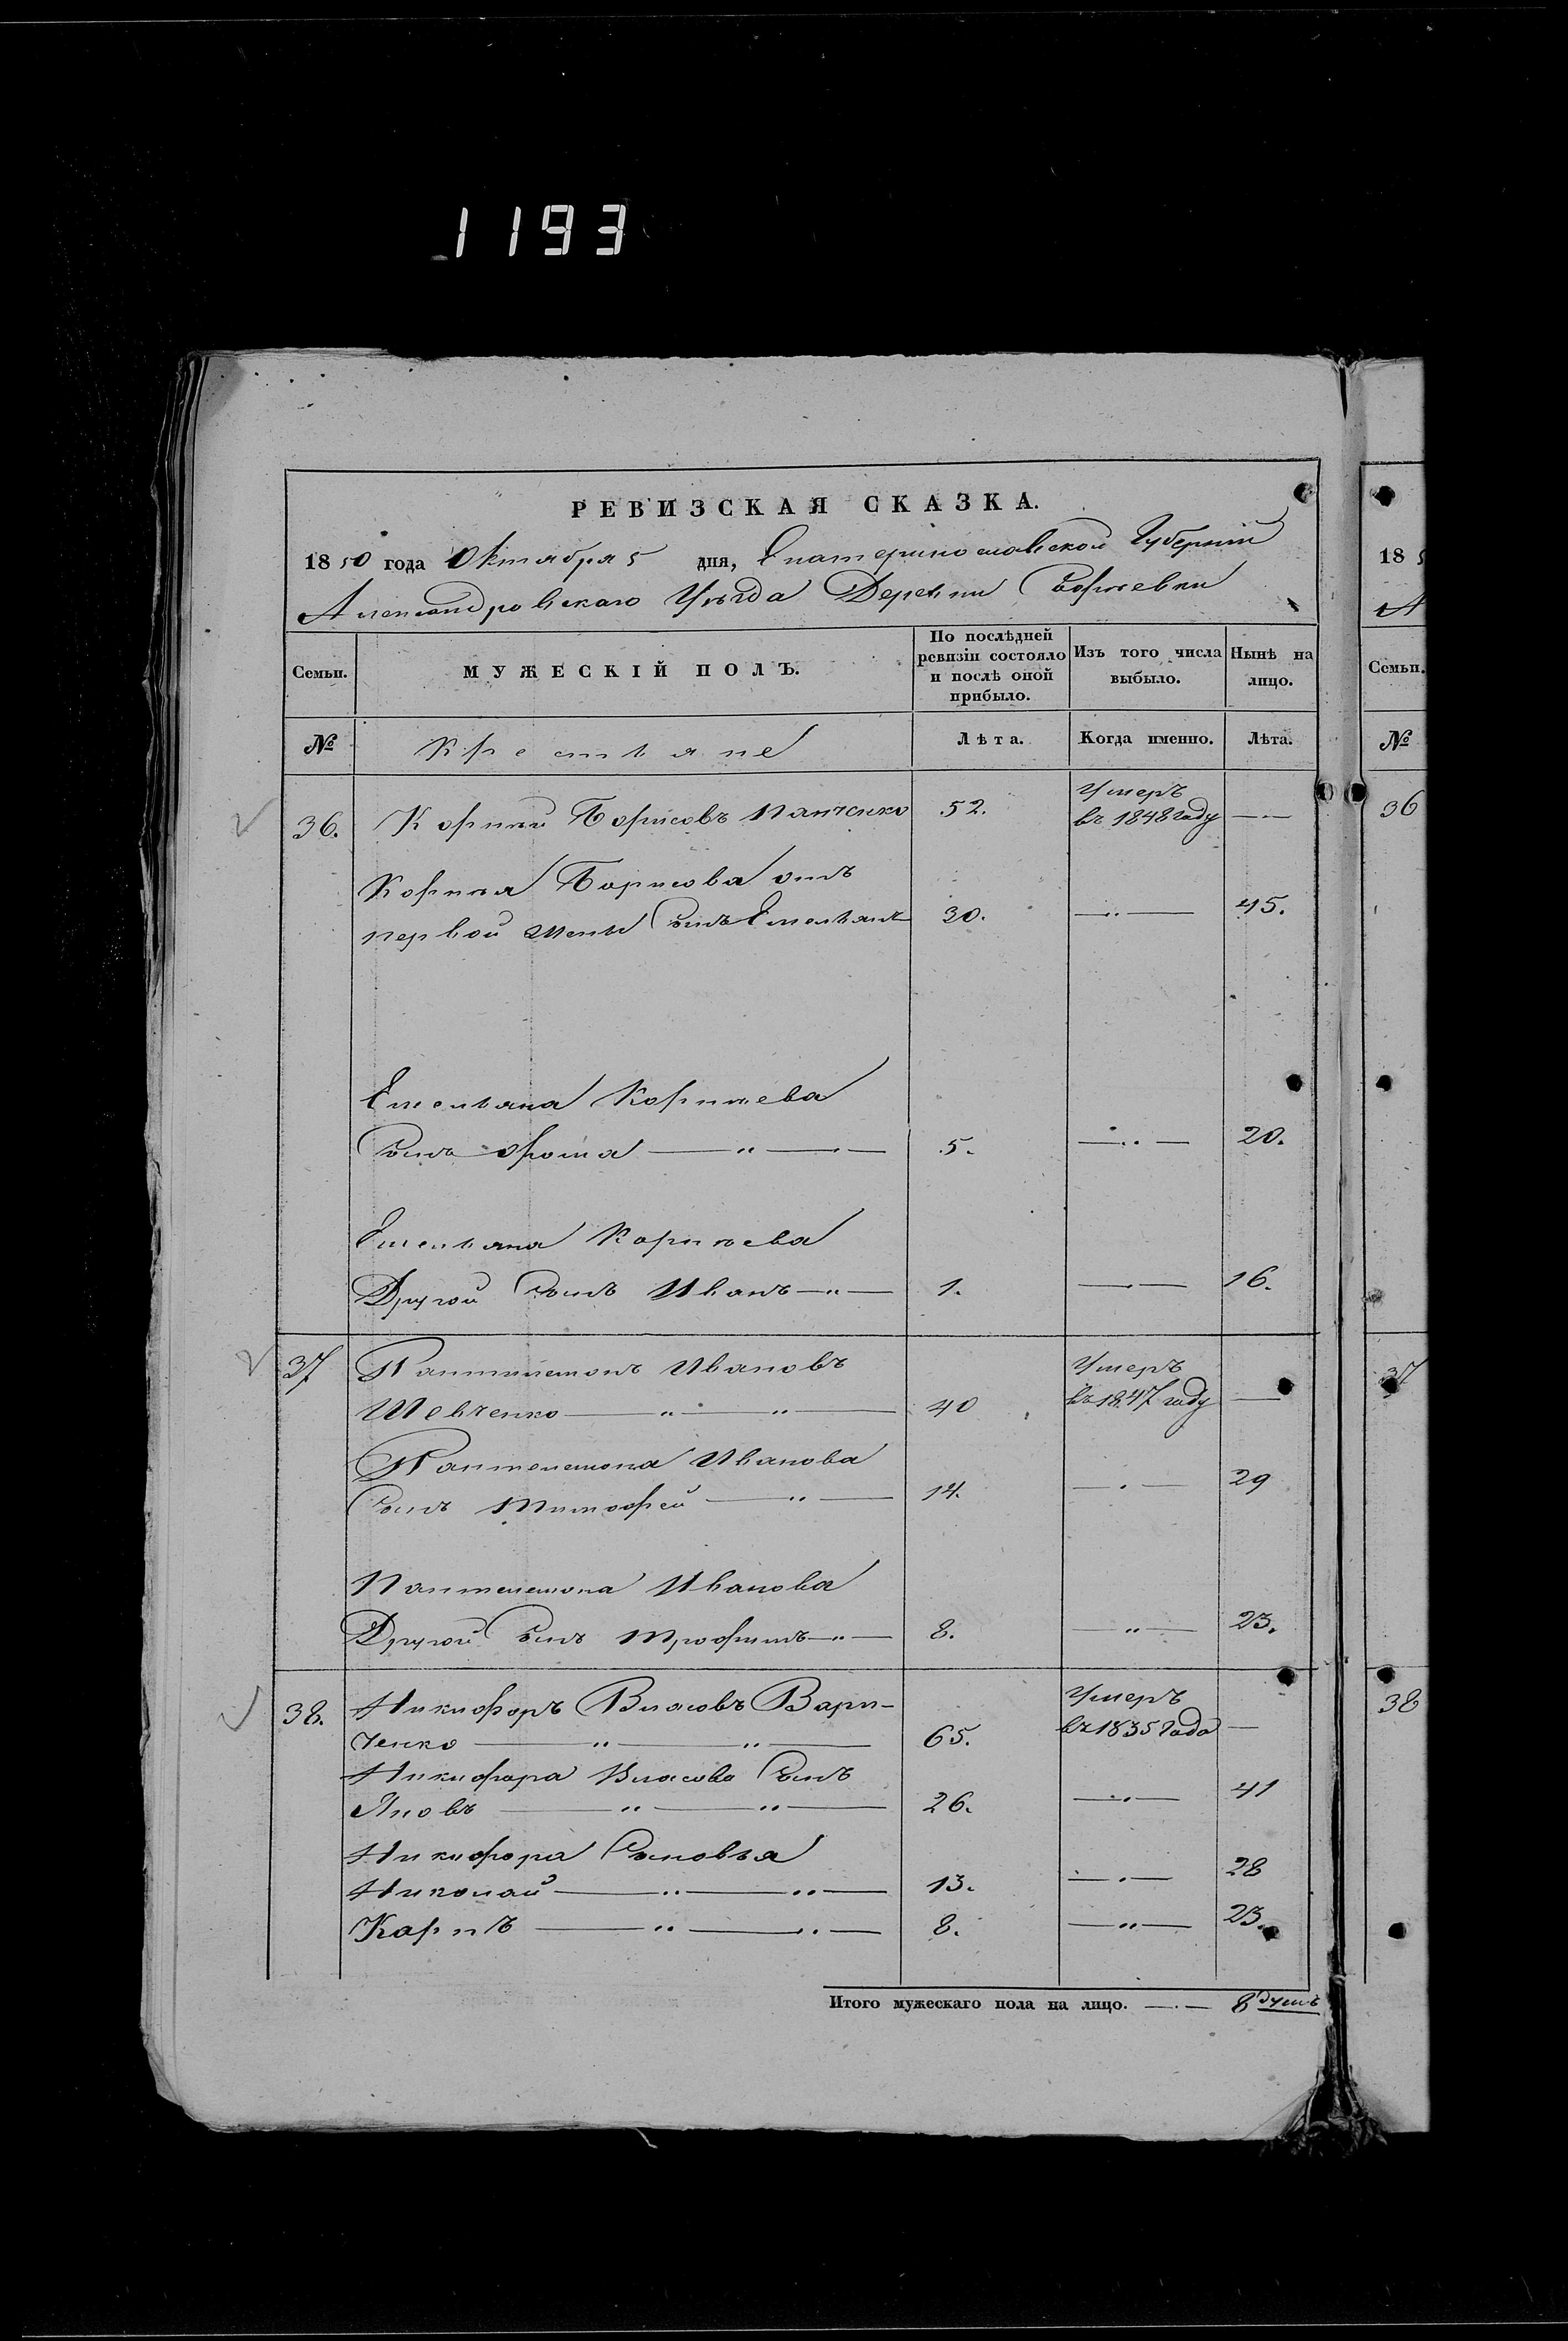 1193
РЕВИЗСКАЯ СКАЗКА.
1850 года Октября 5 дня, Екатеринославской Губерніи
Александровскаго Уѣзда Деревни
Семьи.
МУЖЕСКІЙ ПОЛЪ.
По послѣдней ревизіи состояло и послѣ оной прибыло.
Изъ того числа выбыло.
Нынѣ на лицо.
№
Крестьяне
Лѣта.
Когда именно.
Лѣта.
36. Корнѣй Борисовъ Панченко 52. Умеръ въ 1848 году —
Корнѣя Борисова отъ
первой жены Сынъ Емельянъ 30. — 45.
Емельяна Корнѣева
Сынъ 5. — 20.
Емельяна Корнѣева
Другой Сынъ Иванъ 1. — 16.
37 Пантилемонъ Ивановъ
Шевченко 40 Умеръ въ 1847 году —
Пантелемона Иванова
Сынъ Тимофей 14. — 29
Пантелемона Иванова
Другой Сынъ Трофимъ 8. — 23.
38. Никифоръ Власовъ Вари-
ченко 65. Умеръ въ 1835 Года —
Никифора Власова Сынъ
Яковъ 26. — 41
Никифора Сыновья
Николай 13. — 28
Карпъ 8. — 23.
Итого мужескаго пола на лицо. — 8 душъ
18 5
А
Семьи.
№
36
37
38